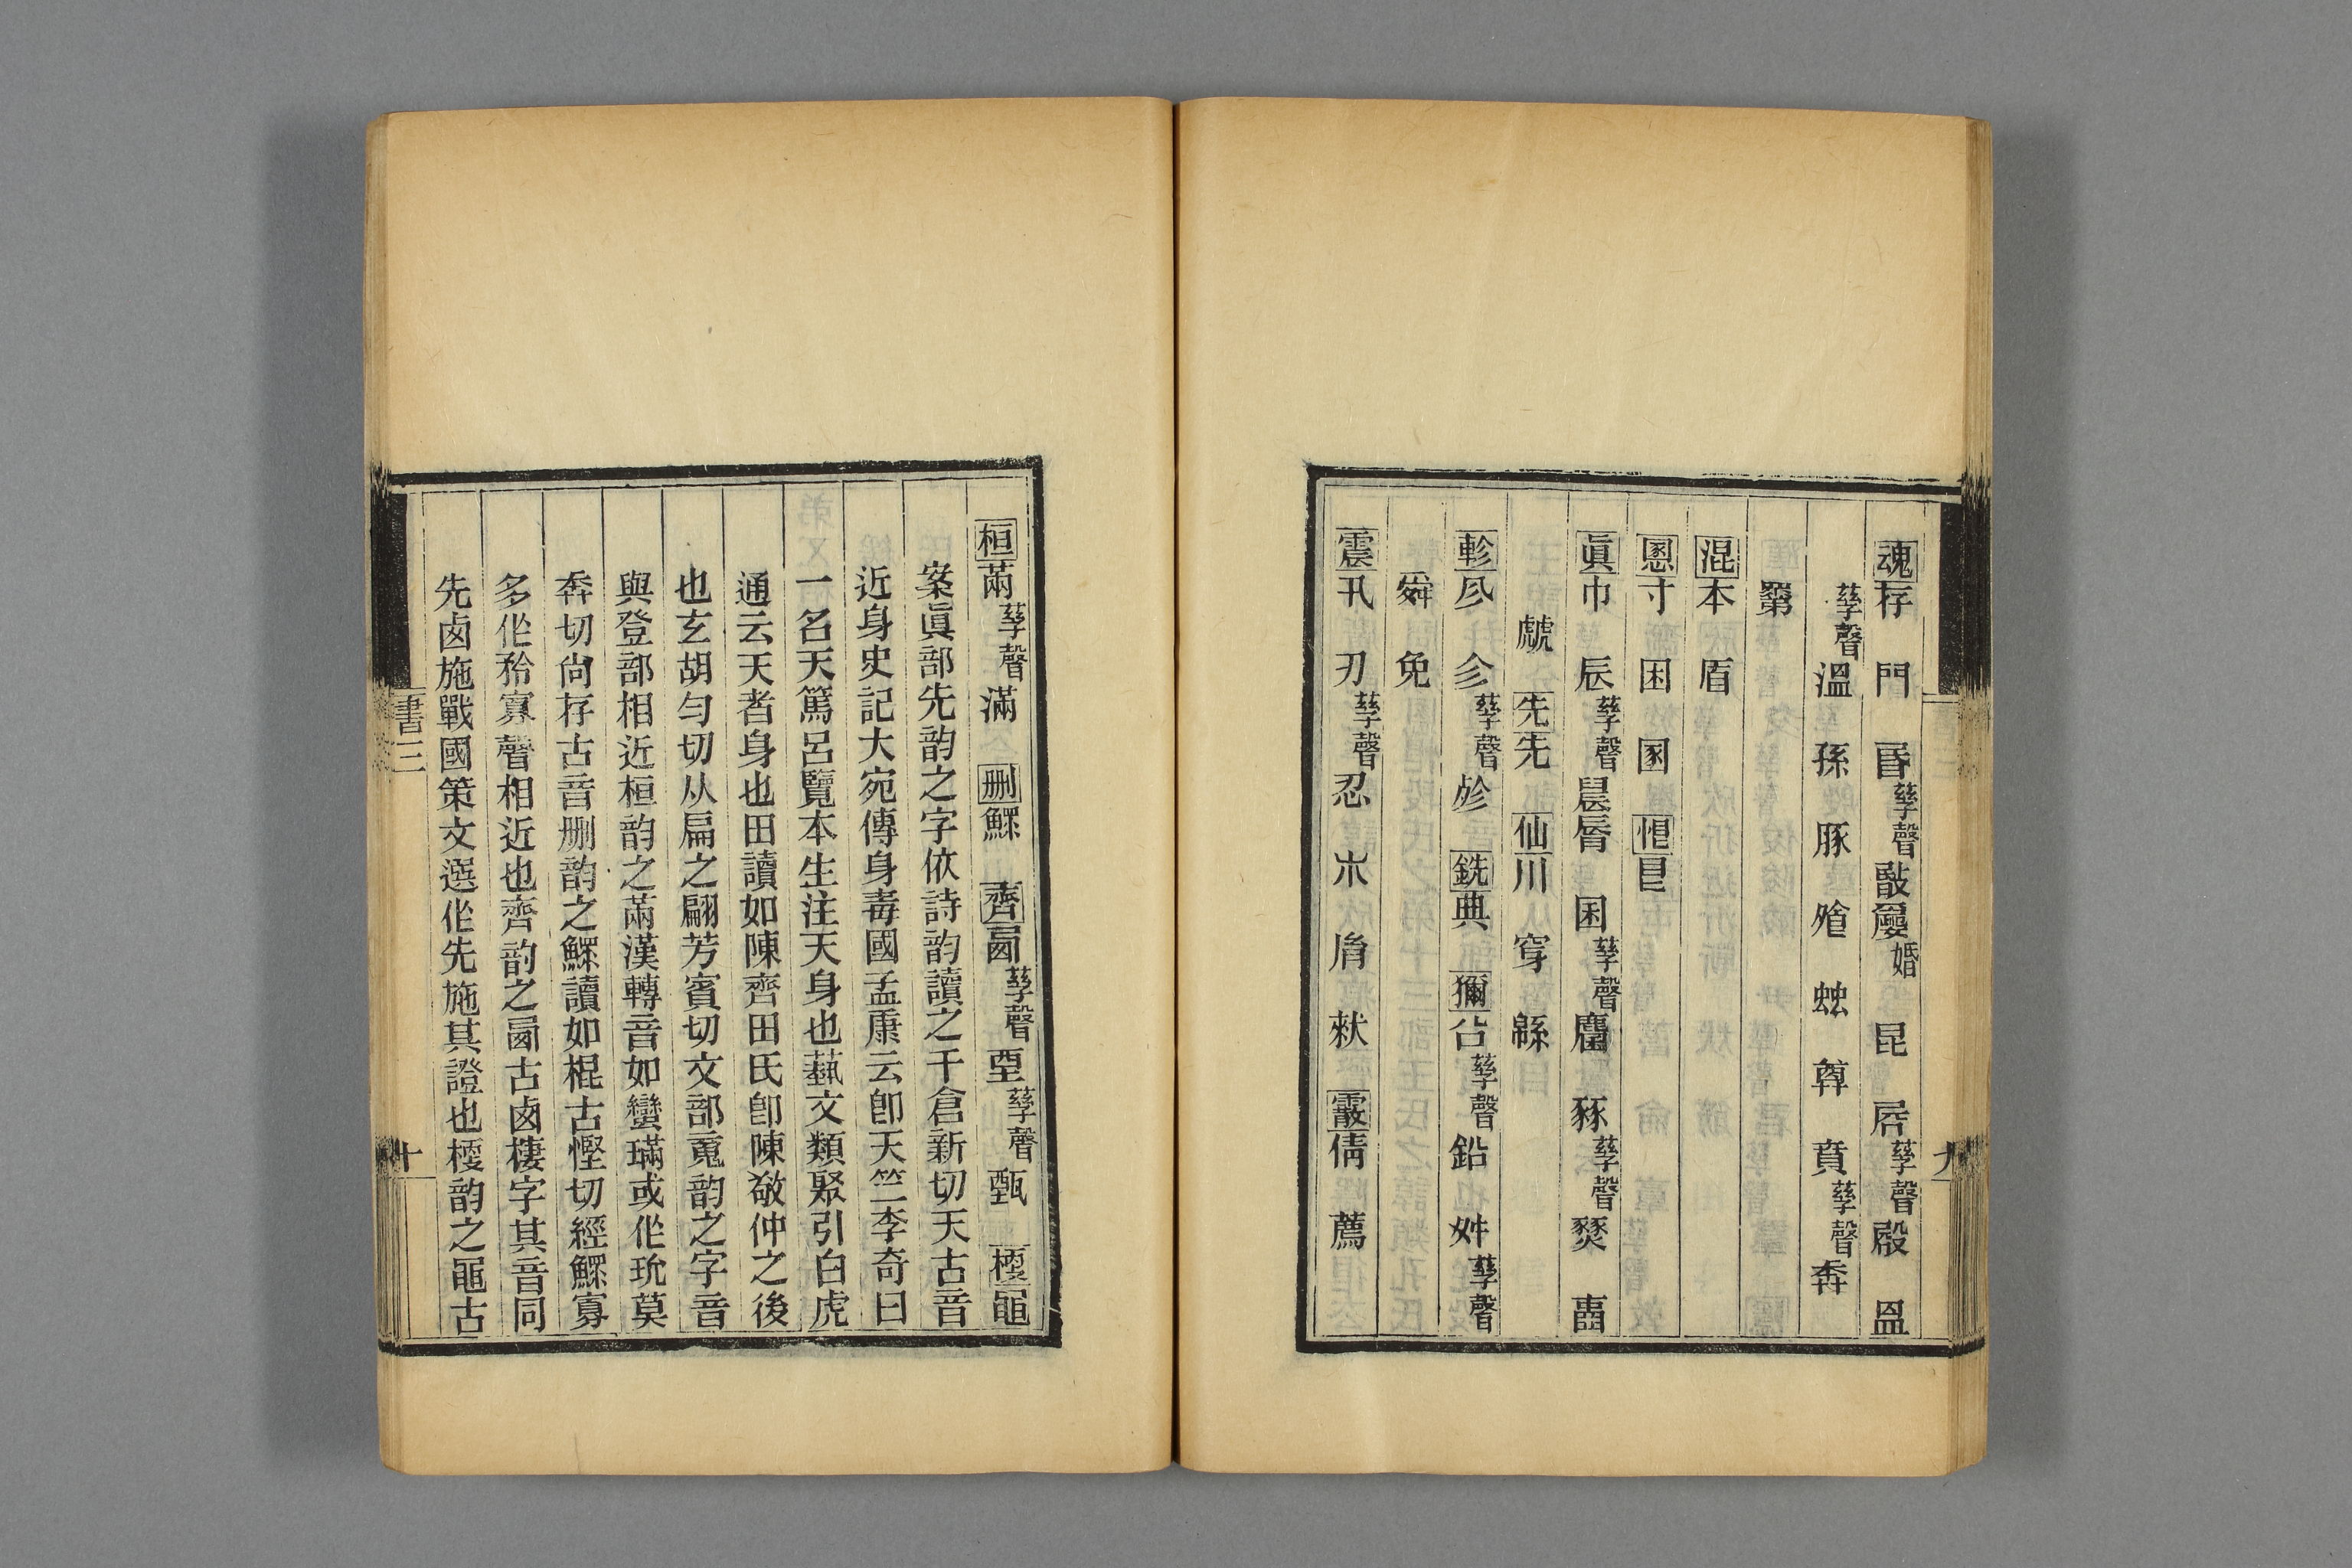 魂存 門 昬孳聲敯㜇婚 昆 𡱂孳聲殿 𥁕
孳聲溫 孫 豚 飧 䖵 尊 賁孳聲奔
𥻆
混本 盾
慁寸 困 圂 𢘆㫐
眞巾 辰孳聲晨脣 囷孳聲麕 豩孳聲燹 𧆨
虤 先先 仙川 穿 緜
軫㐱 㐱孳聲𣧄 銑典 獮㕣孳聲鉛 舛孳聲
舜 免
震卂 刃孳聲忍 𣎳 㡀 猌 霰倩 薦
九
桓㒼孳聲滿 刪鰥 齊𠧪孳聲垔孳聲甄 㮨黽
案眞部先韵之字依詩韵讀之千倉新切天古音
近身史記大宛傳身毒國孟康云卽天竺李奇曰
一名天篤呂覽本生注天身也藝文類聚引白虎
通云天者身也田讀如陳齊田氏卽陳敬仲之後
也玄胡勻切从扁之翩芳賓切文部䰟韵之字音
與登部相近桓韵之㒼漢轉音如蠻璊或作玧莫
奔切尙存古音刪韵之鰥讀如棍古慳切經鰥寡
多作矜寡聲相近也齊韵之𠧪古卤棲字其音同
先卤施戰國策文選作先施其證也㮨韵之黽古
書三
十